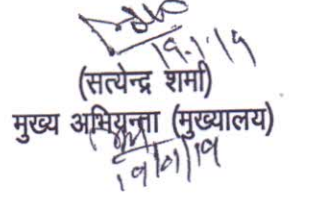 19.1.19
(सत्येन्द्र शर्मा)
मुख्य अभियन्ता (मुख्यालय)